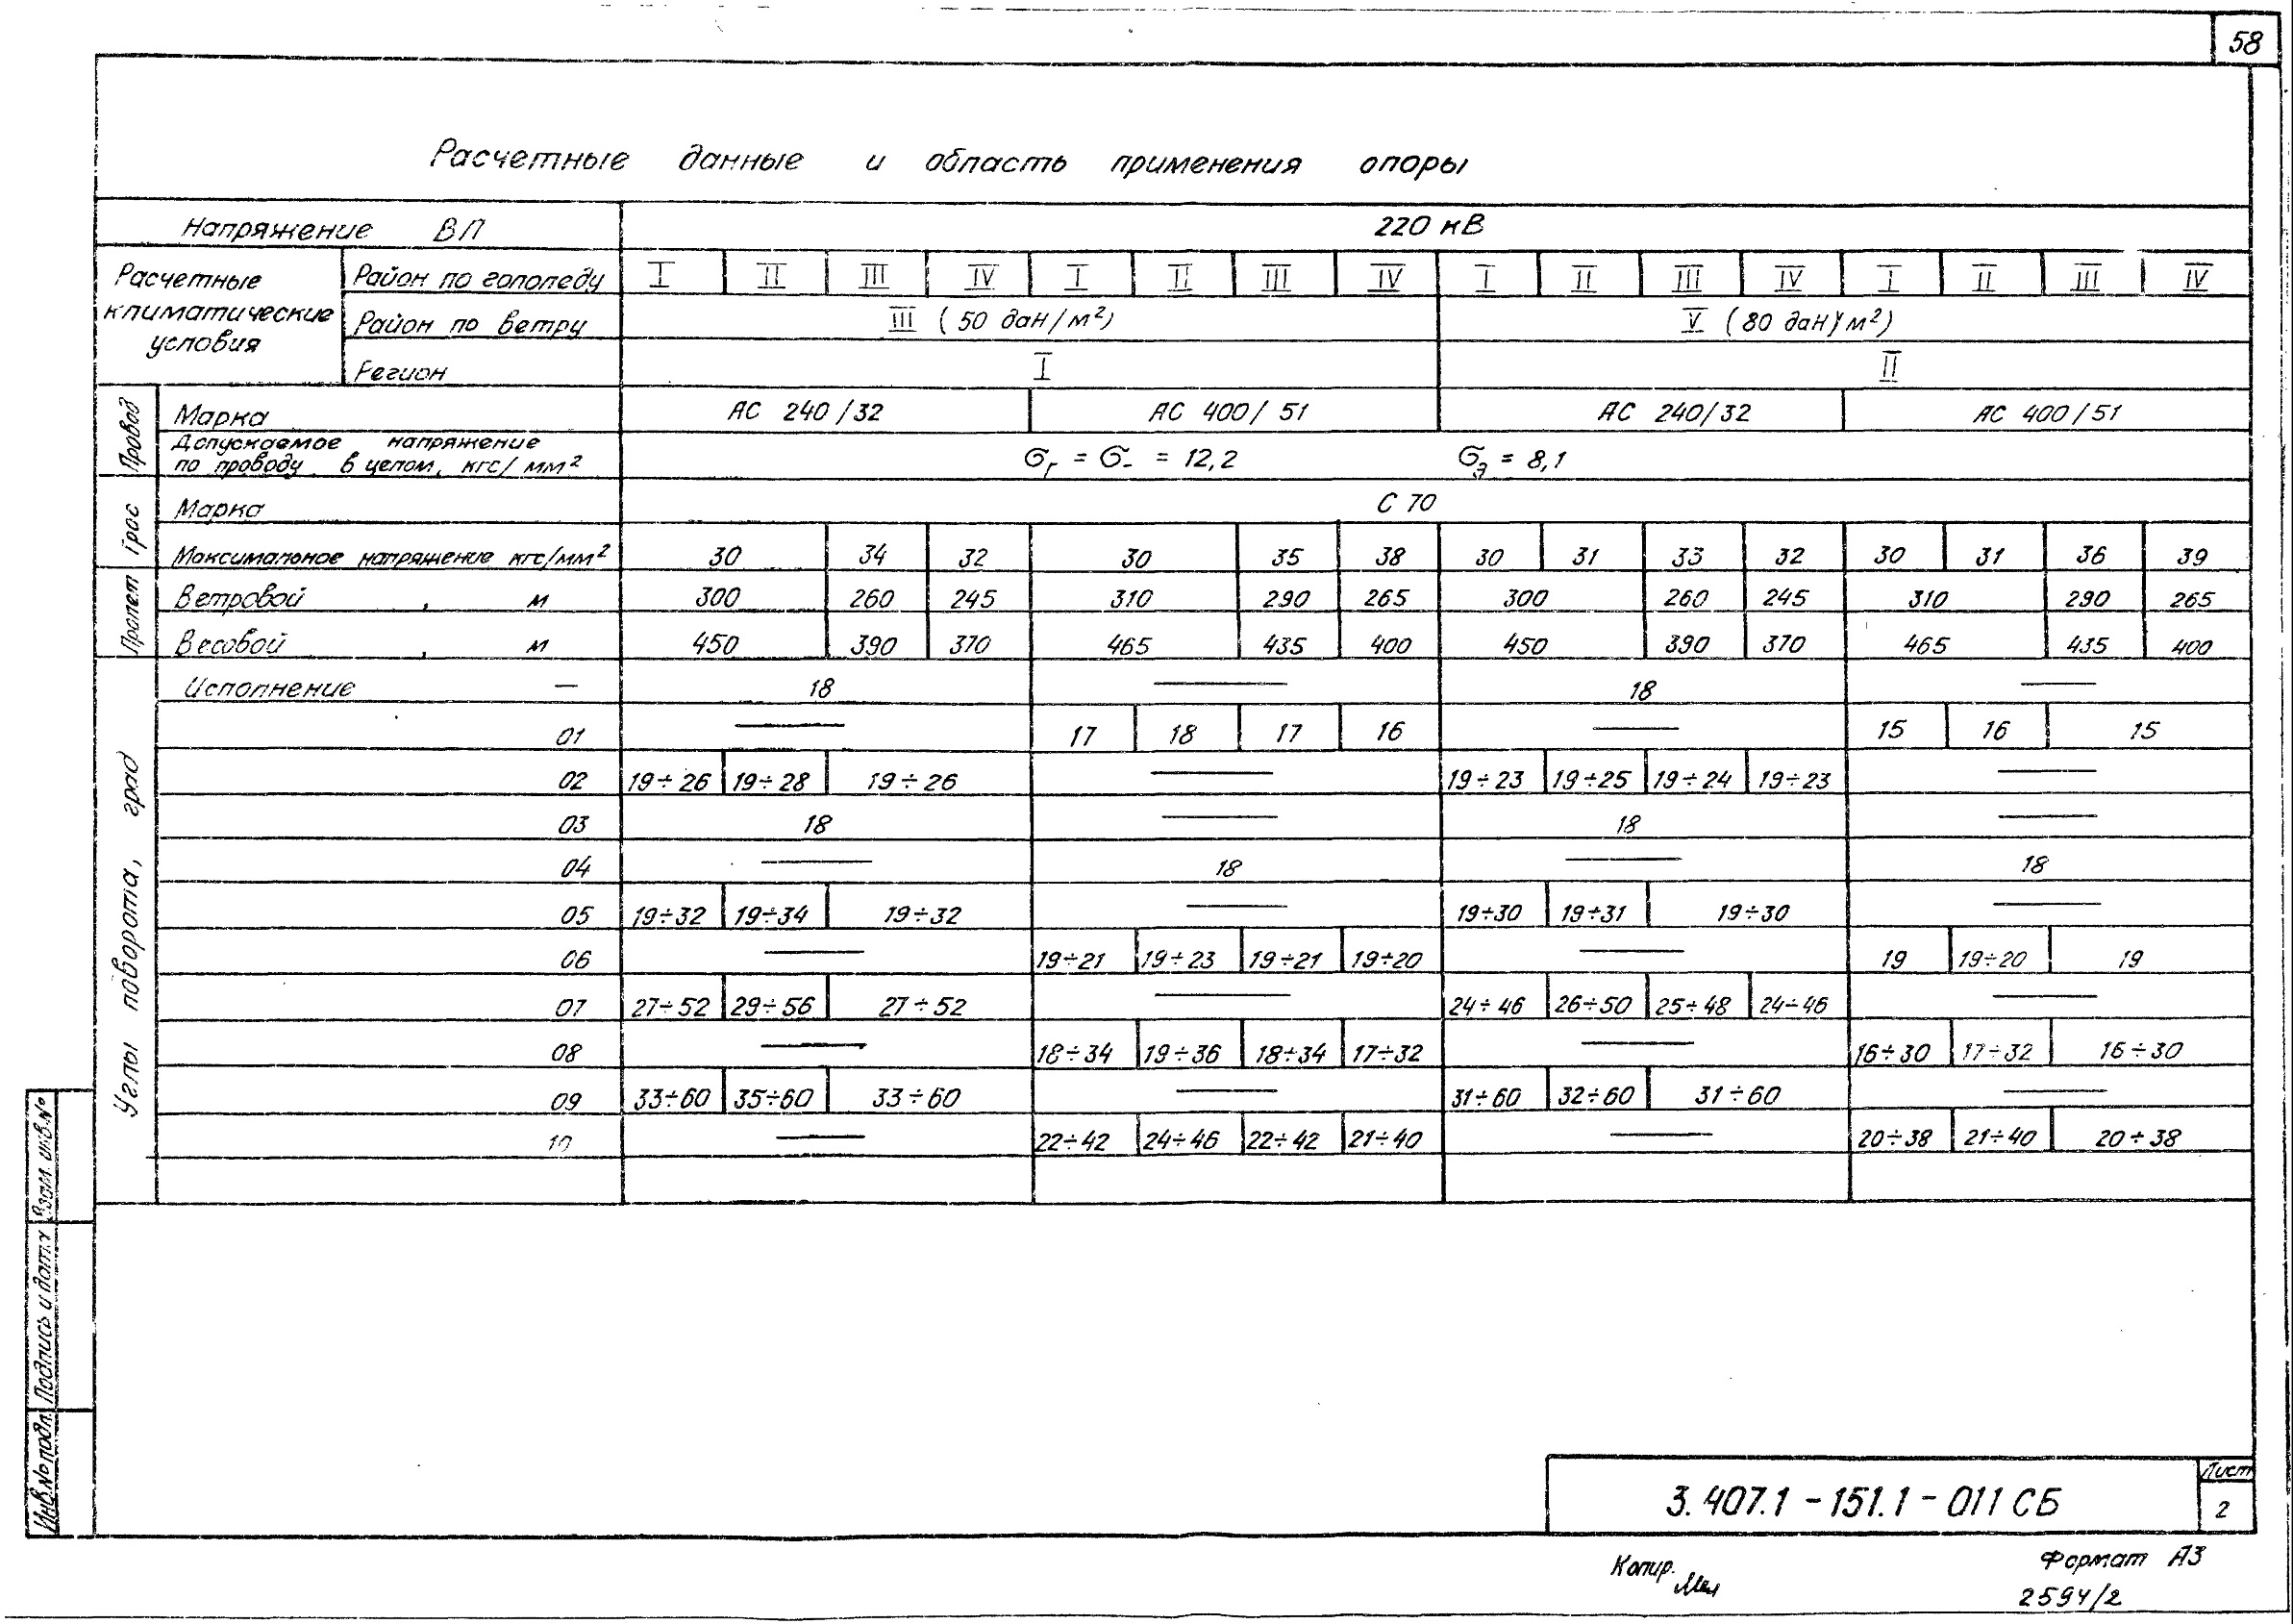 58
Расчетные данные и область применения опоры
Напряжение ВЛ 220 кВ
Расчетные климатические условия
Район по гололеду I II III IV I II III IV I II III IV I II III IV
Район по ветру III (50 даН/м²) V (80 даН/м²)
Регион I II
Провод
Марка АС 240/32 АС 400/51 АС 240/32 АС 400/51
Допускаемое напряжение
по проводу в целом, кгс/мм² σг = σ- = 12,2 σэ = 8,1
Трос
Марка С 70
Максимальное напряжение кгс/мм² 30 34 32 30 35 38 30 31 33 32 30 31 36 39
Пролет
Ветровой, м 300 260 245 310 290 265 300 260 245 310 290 265
Весовой, м 450 390 370 465 435 400 450 390 370 465 435 400
Углы поворота, град
Исполнение — 18 — 18 —
01 — 17 18 17 16 — 15 16 15
02 19÷26 19÷28 19÷26 — 19÷23 19÷25 19÷24 19÷23 —
03 18 — 18 —
04 — 18 — 18
05 19÷32 19÷34 19÷32 — 19÷30 19÷31 19÷30 —
06 — 19÷21 19÷23 19÷21 19÷20 — 19 19÷20 19
07 27÷52 29÷56 27÷52 — 24÷46 26÷50 25÷48 24÷46 —
08 — 18÷34 19÷36 18÷34 17÷32 — 16÷30 17÷32 16÷30
09 33÷60 35÷60 33÷60 — 31÷60 32÷60 31÷60 —
10 — 22÷42 24÷46 22÷42 21÷40 — 20÷38 21÷40 20÷38
Взам. инв.№
Подпись и дата
Инв.№ подл.
3.407.1-151.1-011 СБ
Лист
2
Копир.
Формат А3
2594/2